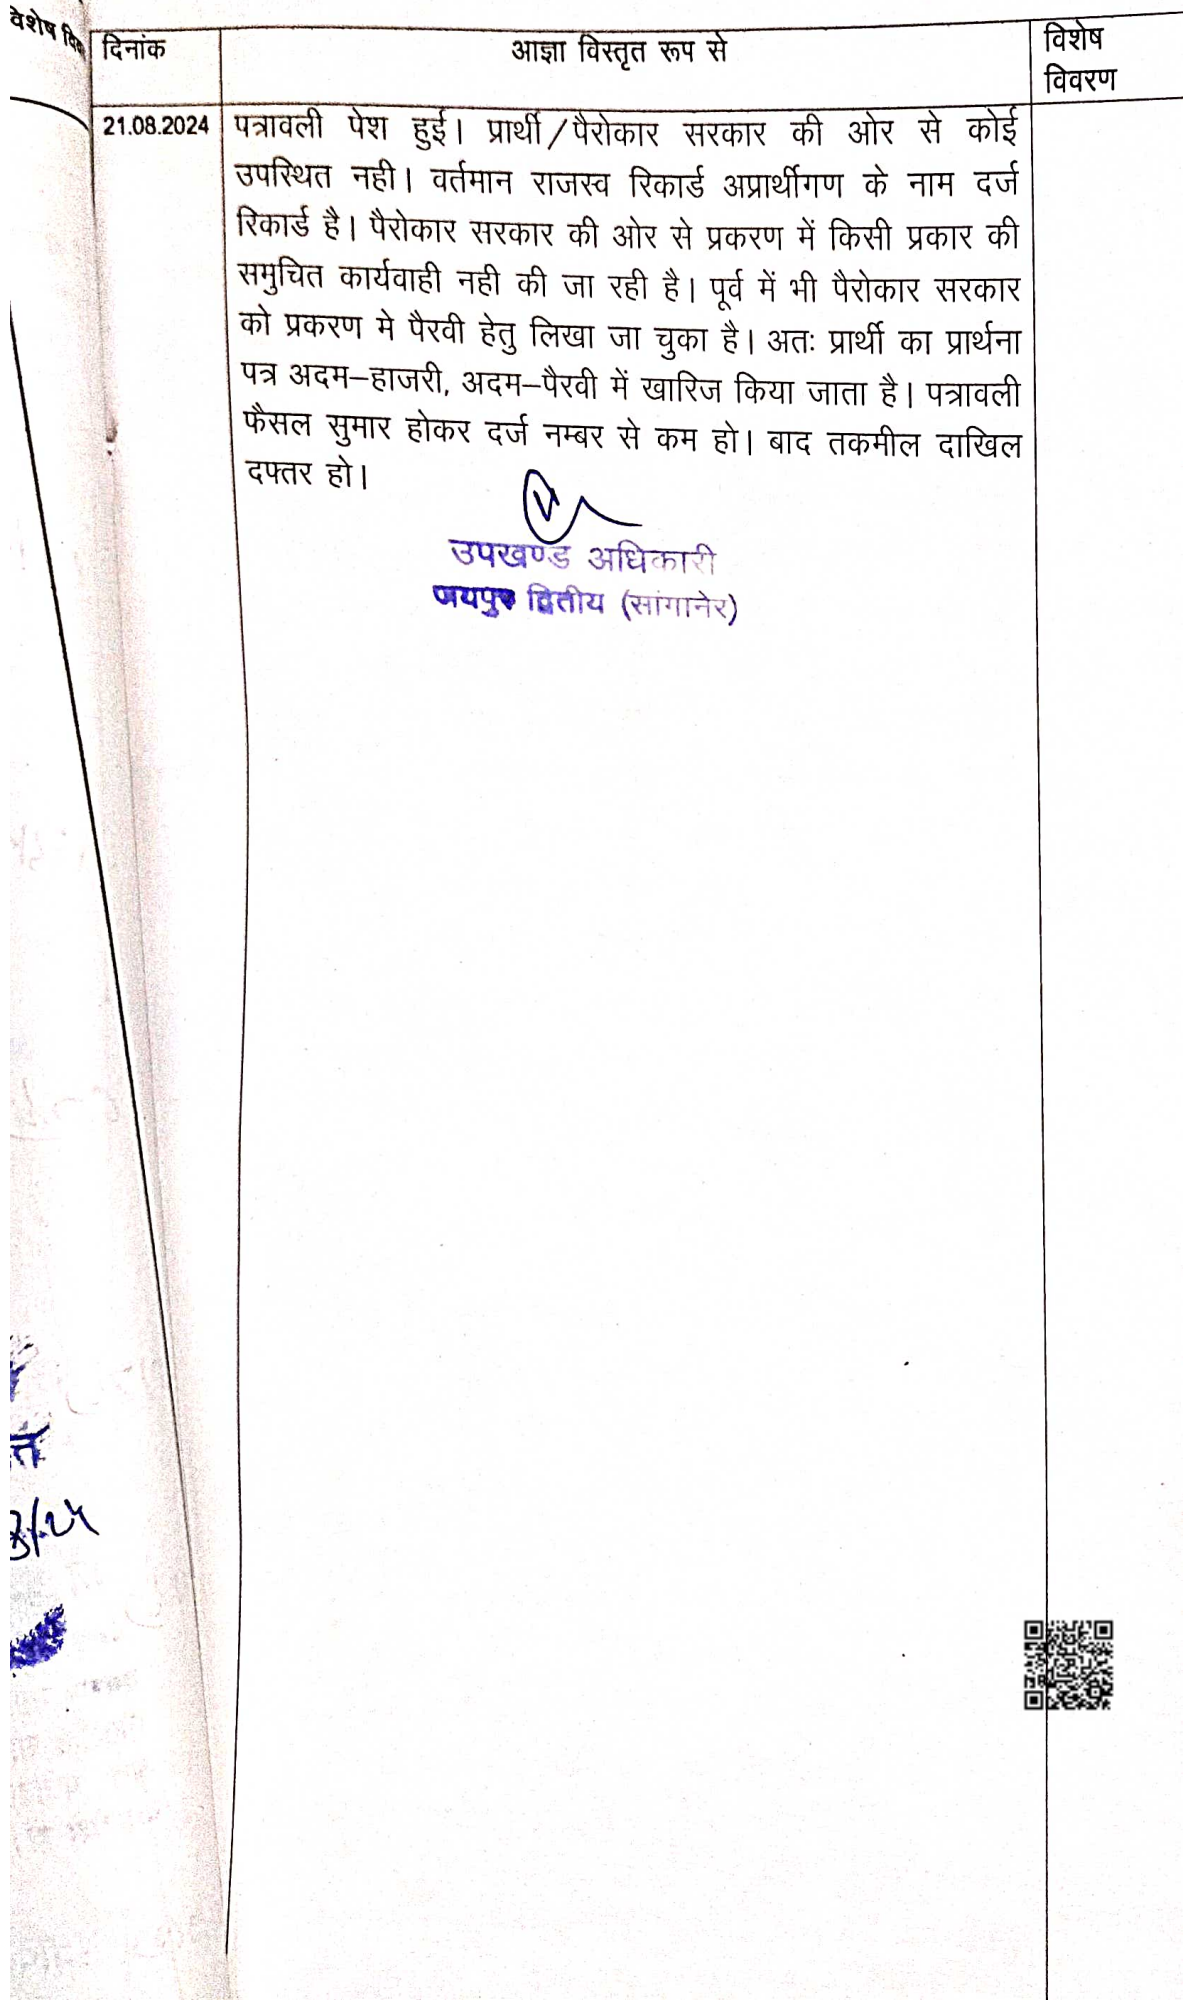 विशेष वि
दिनांक
आज्ञा विस्तृत रूप से
विशेष
विवरण
21.08.2024
पत्रावली पेश हुई। प्रार्थी/पैरोकार सरकार की ओर से कोई
उपस्थित नही। वर्तमान राजस्व रिकार्ड अप्रार्थीगण के नाम दर्ज
रिकार्ड है। पैरोकार सरकार की ओर से प्रकरण में किसी प्रकार की
समुचित कार्यवाही नही की जा रही है। पूर्व में भी पैरोकार सरकार
को प्रकरण मे पैरवी हेतु लिखा जा चुका है। अतः प्रार्थी का प्रार्थना
पत्र अदम–हाजरी, अदम–पैरवी में खारिज किया जाता है। पत्रावली
फैसल सुमार होकर दर्ज नम्बर से कम हो। बाद तकमील दाखिल
दफ्तर हो।
उपखण्ड अधिकारी
जयपुर द्वितीय (सांगानेर)